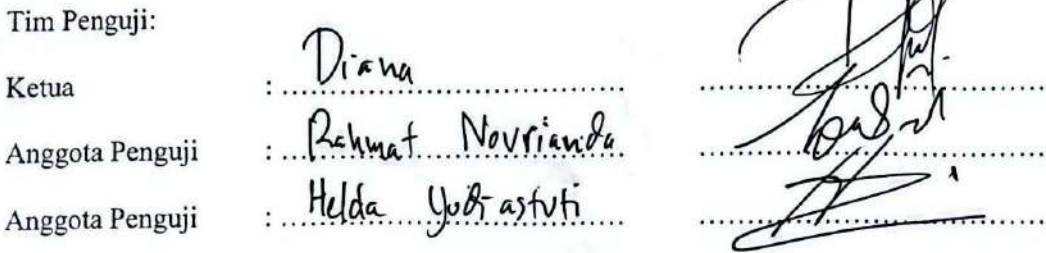 Tim Penguji:
Ketua : Diana
Anggota Penguji : Rahmat Novrianda
Anggota Penguji : Helda Yudiastuti